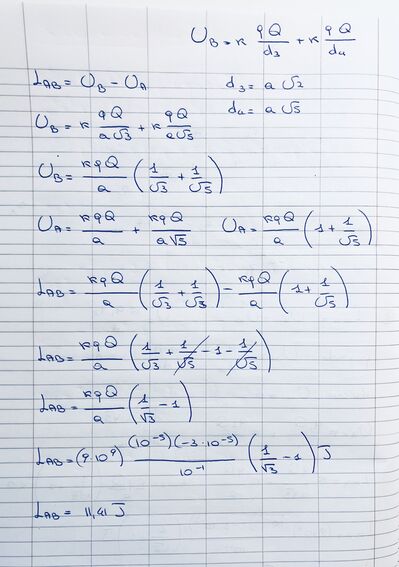 U_B = K qQ/d₃ + K qQ/d₄
L_AB = U_B - U_A d₃ = a√2
d₄ = a√5
U_B = K qQ/a√3 + K qQ/a√5
U_B = KqQ/a (1/√3 + 1/√5)
U_A = KqQ/a + KqQ/a√5 U_A = KqQ/a (1 + 1/√5)
L_AB = KqQ/a (1/√3 + 1/√3) - KqQ/a (1 + 1/√5)
L_AB = KqQ/a (1/√3 + 1/√5 - 1 - 1/√5)
L_AB = KqQ/a (1/√3 - 1)
L_AB = (9·10⁹) (10⁻⁵)(-3·10⁻⁵)/10⁻¹ (1/√3 - 1) J
L_AB = 11,41 J